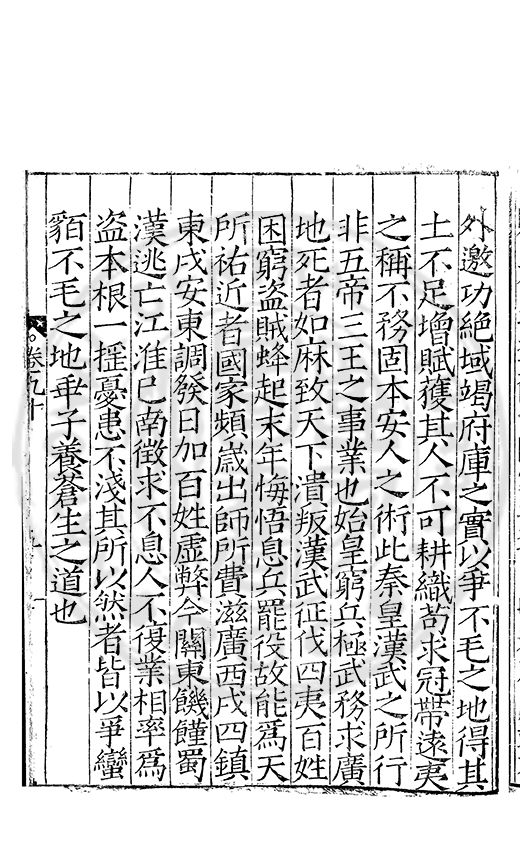 外邀功絶域竭府庫之實以爭不毛之地得其
土不足增賦獲其人不可耕織苟求冠帶遠夷
之稱不務固本安人之術此秦皇漢武之所行
非五帝三王之事業也始皇窮兵極武務求廣
地死者如麻致天下潰叛漢武征伐四夷百姓
困窮盜賊蜂起末年悔悟息兵罷役故能爲天
所祐近者國家頻歲出師所費滋廣西戍四鎮
東戍安東調發日加百姓虛弊今關東饑饉蜀
漢逃亡江淮已南徵求不息人不復業相率爲
盜本根一揺憂患不淺其所以然者皆以爭蠻
貊不毛之地乖子養蒼生之道也
卷九十